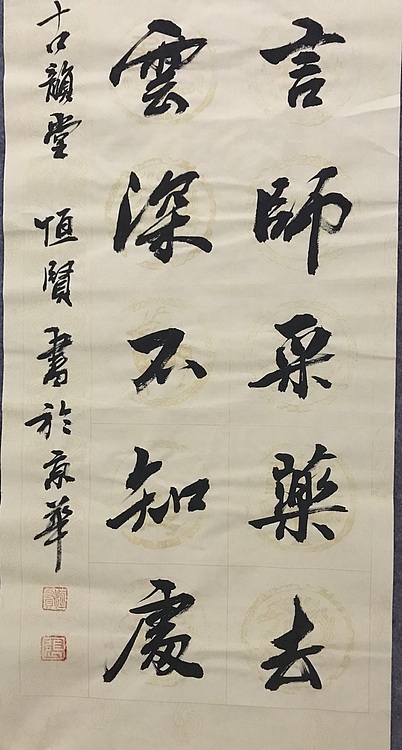 言師采藥去
雲深不知處
古韻堂 恒賢書於京華